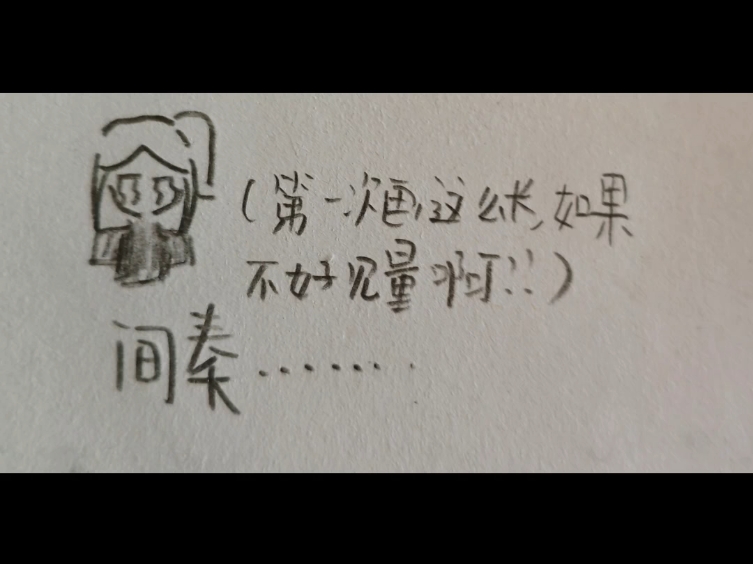 (第一次画,这么长,如果
不好见量啊!!)
间奏·······